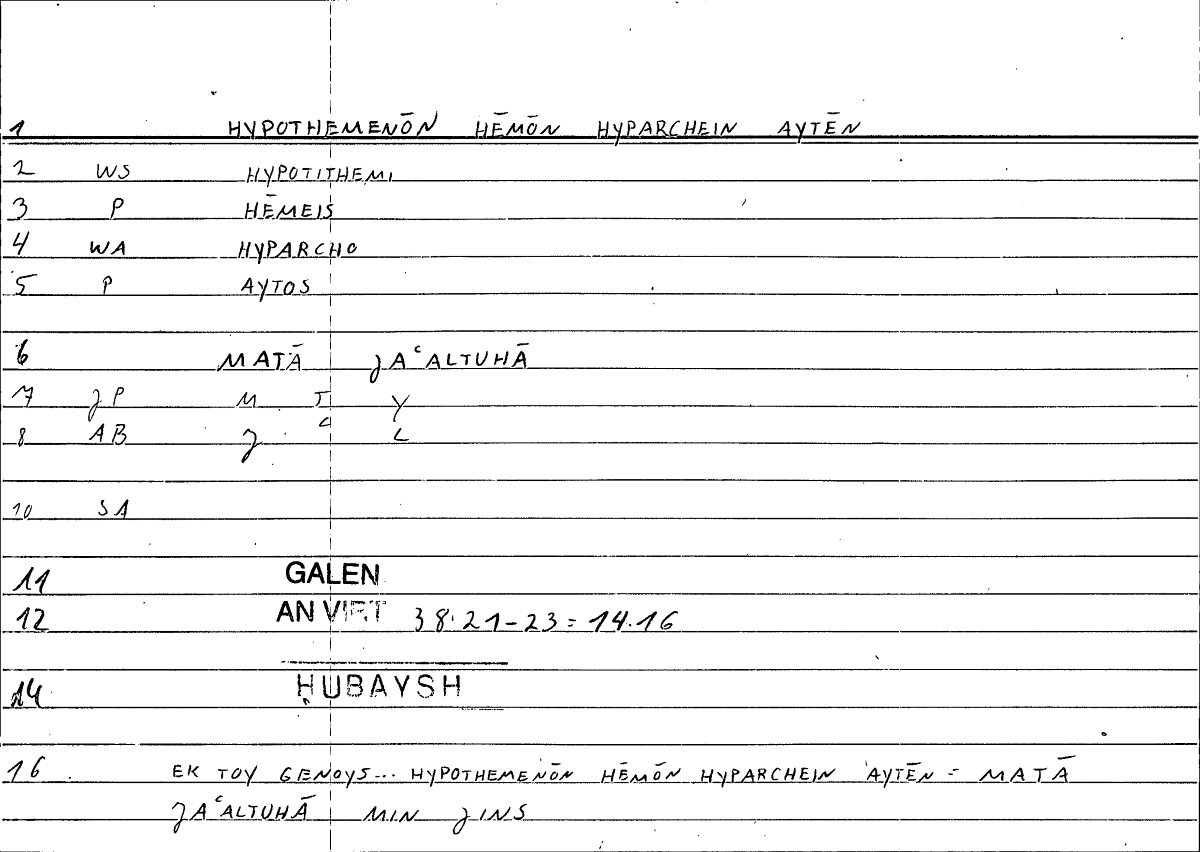 1 HYPOTHEMENŌN HĒMŌN HYPARCHEIN AYTĒN
2 WS HYPOTITHEMI
3 P HĒMEIS
4 WA HYPARCHO
5 P AYTOS
6 MATĀ JAʿALTUHĀ
7 JP M T Y
8 AB J ʿ L
10 SA
11 GALEN
12 AN VIRT 38.21-23 = 14.16
14 ḤUBAYSH
16 EK TOY GENOYS... HYPOTHEMENŌN HĒMŌN HYPARCHEIN AYTĒN = MATĀ
JAʿALTUHĀ MIN JINS